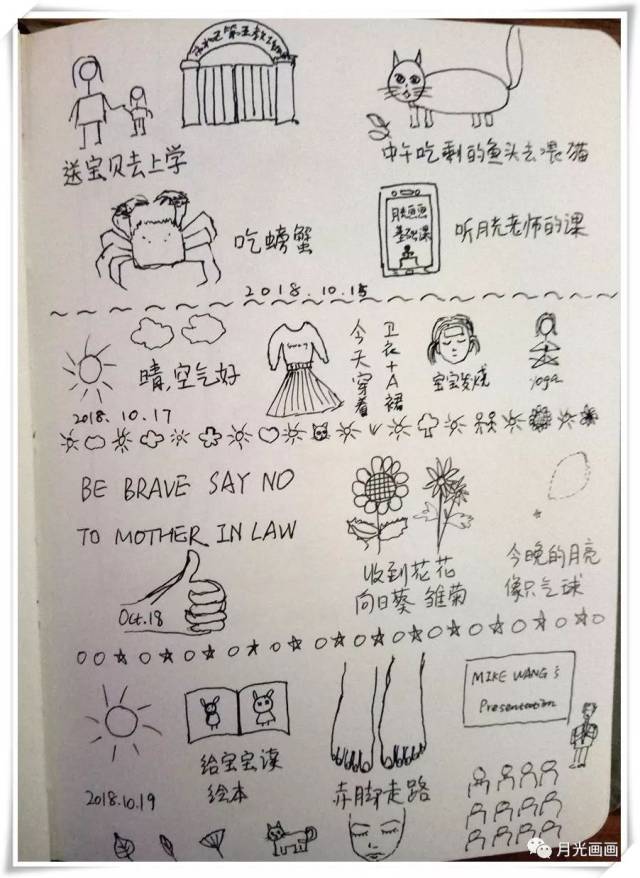 送宝贝去上学
中午吃剩的鱼头去喂猫
吃螃蟹
月亮画画
基础课
听月亮老师的课
2018.10.15
晴,空气好
今天穿着
卫衣+A裙
宝宝发烧
yoga
2018.10.17
BE BRAVE SAY NO
TO MOTHER IN LAW
Oct.18
收到花花
向日葵 雏菊
今晚的月亮
像只气球
MIKE WANG'S
Presentation
给宝宝读
绘本
赤脚走路
2018.10.19
月光画画